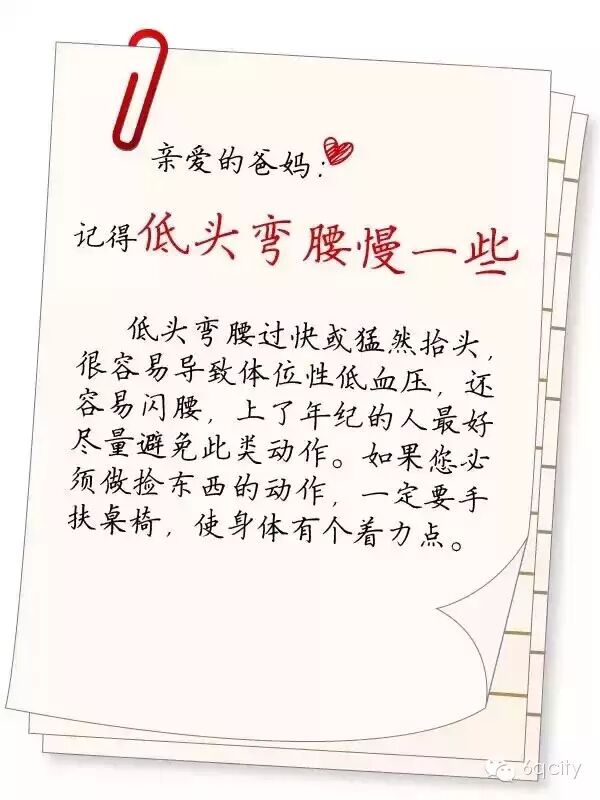 亲爱的爸妈：
记得低头弯腰慢一些
低头弯腰过快或猛然抬头，
很容易导致体位性低血压，还
容易闪腰，上了年纪的人最好
尽量避免此类动作。如果您必
须做捡东西的动作，一定要手
扶桌椅，使身体有个着力点。
6qcity